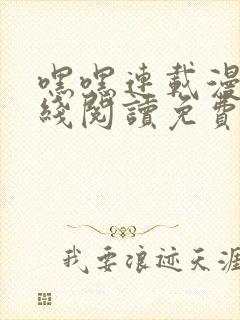 嘿嘿連載漫
綫閱讀免費
我要浪迹天涯